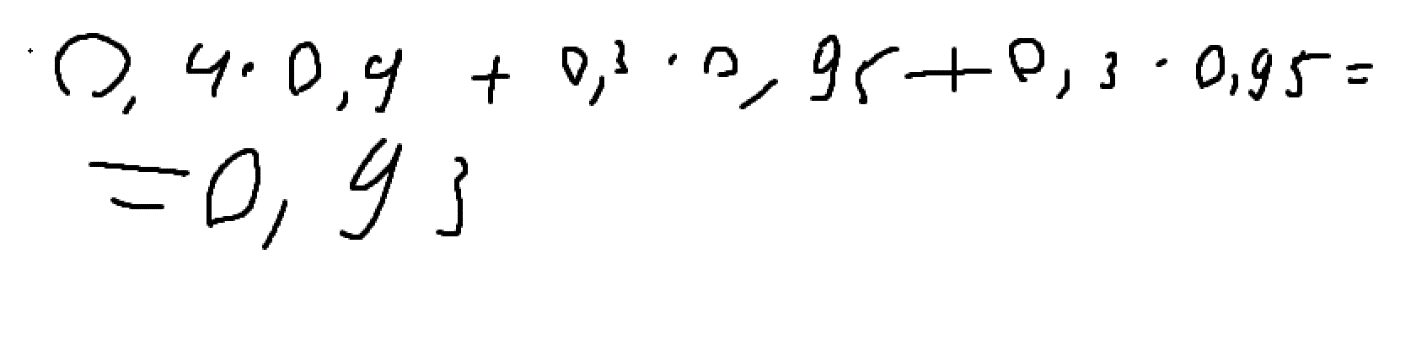 0,4·0,9 + 0,3·0,95+0,3·0,95=
=0,93